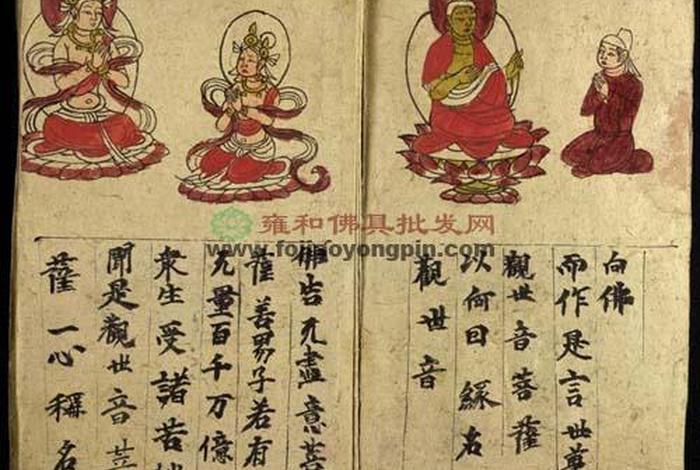 雍和佛具批发网
www.fojufoyongpin.com
向佛
而作是言世尊
觀世音菩薩
以何因緣名
觀世音
佛告无盡意菩
薩善男子若有
无量百千万億
衆生受諸苦
聞是觀世音菩
薩一心稱名